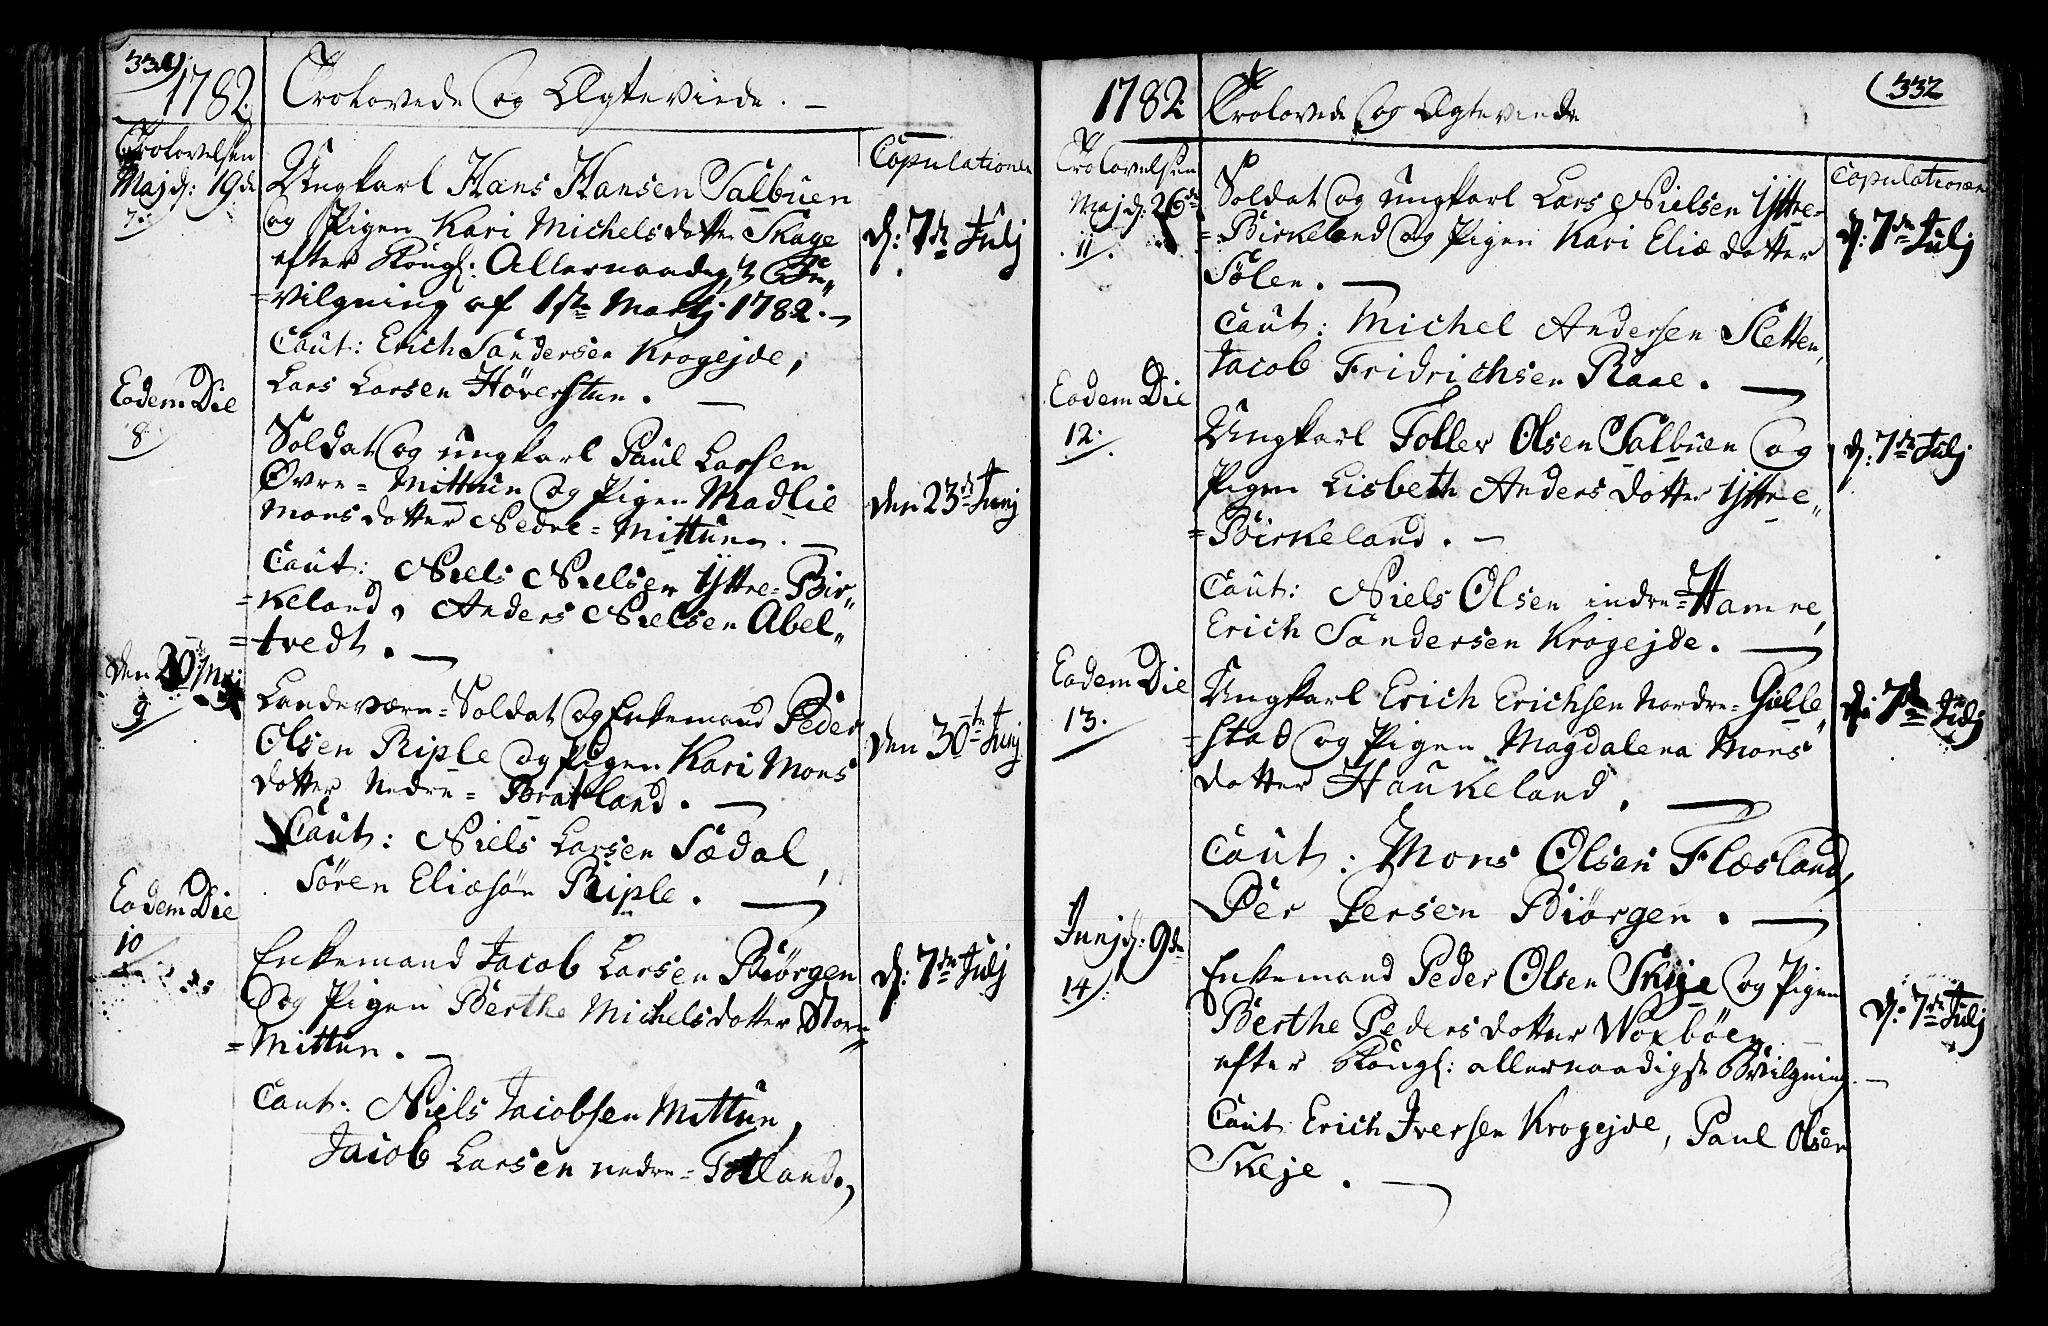 1782. Trolovede og Ægteviede. —
Trolovelsen
Copulationen
Majd: 19de
7.
Ungkarl Hans Hansen Salbuen
og Pigen Kari Michelsdotter Skage
efter Kongl: Allernaadigste Be„
=vilgning af 1ste Martj 1782. —
d: 7de Julj
Caut: Erich Sandersen Krogejde,
Lars Larsen Höversteen. —
Eodem Die
8.
Soldat og ungkarl Paul Larsen
Øvre=Mittun og Pigen Madlie
Monsdotter Nedre=Mittun. —
den 23de Junj
Caut: Niels Nielsen Yttre=Bir„
=keland, Anders Nielsen Abel„
=tvedt. —
den 20de Maj
9
Landeværn=Soldat og Enkemand Peder
Olsen Riple og Pigen Kari Mons
dotter Nedre=Bratland. —
den 30te Junj
Caut: Niels Larsen Sædal,
Sören Eliæsön Riple. —
Eodem Die
10
Enkemand Jacob Larsen Biörgen
og Pigen Berthe Michelsdotter Store
=Mittun. —
d: 7de Julj
Caut: Niels Jacobsen Mittun,
Jacob Larsen nedre=Totland.,
1782. Trolovede og Ægteviede
332
Trolovelsen
Copulationen
Majd: 26de
11.
Soldat og ungkarl Lars Nielsen Yttre„
=Birkeland og Pigen Kari Eliæ dotter
Sölen. —
d: 7de Julj
Caut: Michel Andersen Sletten,
Jacob Fridrichsen Raae. —
Eodem Die
12.
Ungkarl Foller Olsen Salbuen og
Pigen Lisbeth Andersdotter Yttre„
=Birkeland. —
d: 7de Julj
Caut: Niels Olsen indre=Hamre,
Erich Sandersen Krogejde. —
Eodem Die
13.
Ungkarl Erich Erichsen Nordre=Gielle„
=stad og Pigen Magdalena Mons
dotter Haukeland. —
d: 7de Julj
Caut: Mons Olsen Flæsland,
Per Persen Biörgen. —
Junjd: 9de
14.
Enkemand Peder Olsen Skeje og Pigen
Berthe Pedersdotter Woxböen
efter Kongl: allernaadigste Bevilgning. —
d: 7de Julj
Caut Erich Iversen Krogejde, Paul Olsen
Skeje. —